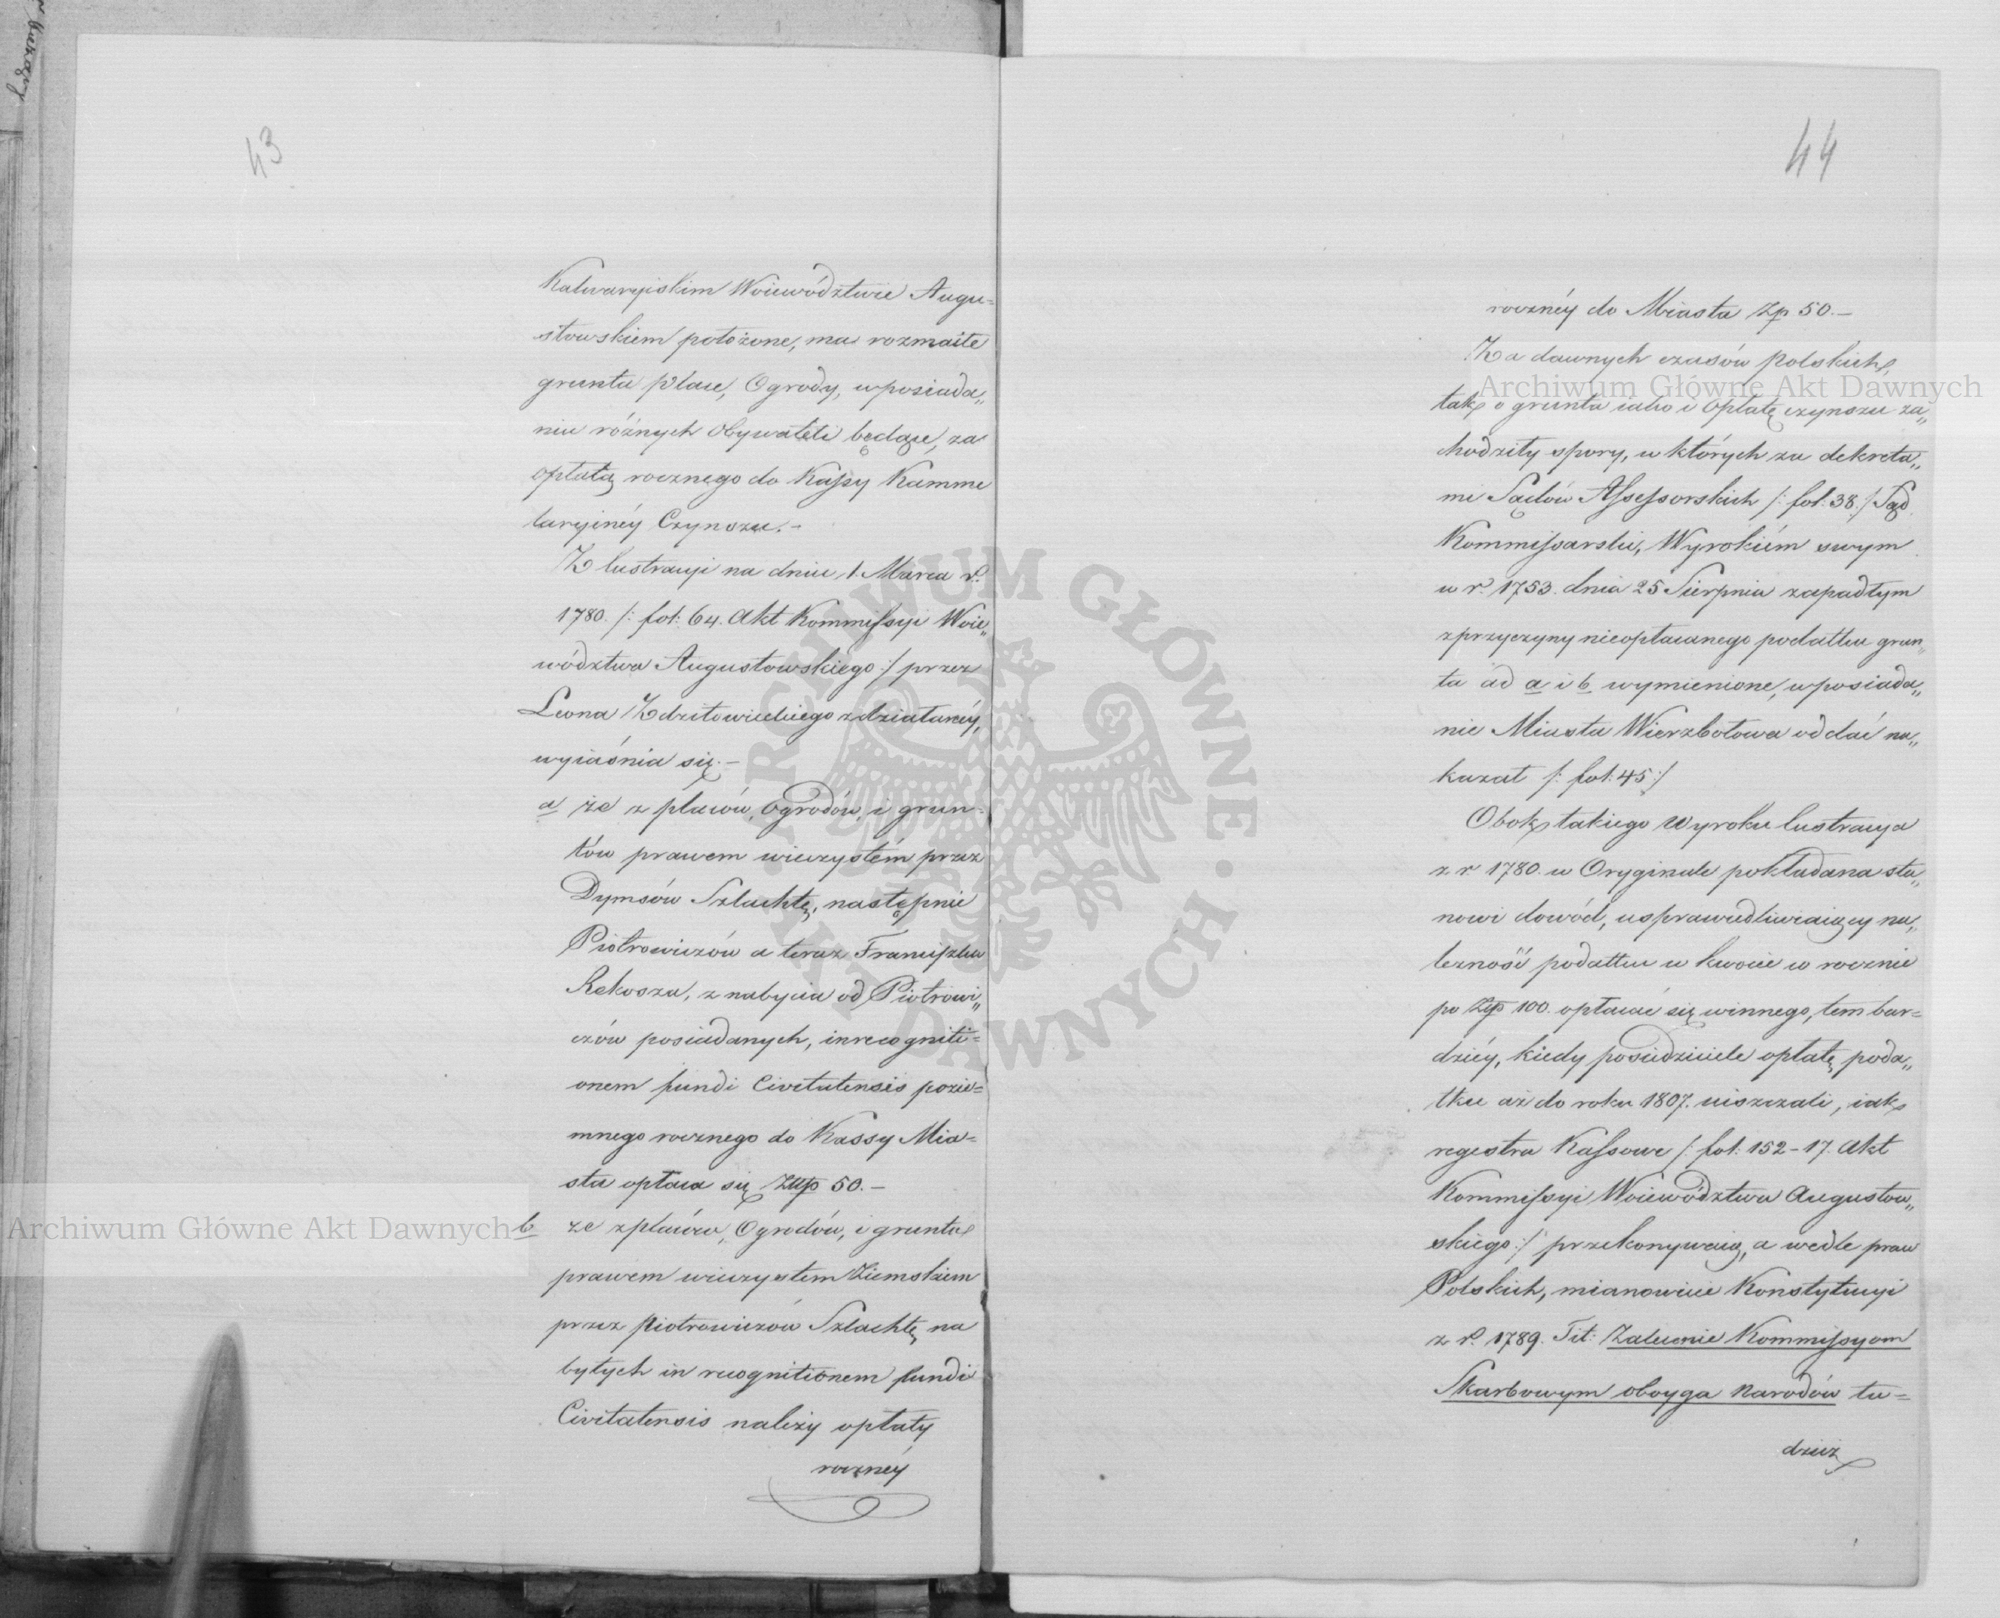 43
Kalwaryiskim Woiewództwie Augu=
stowskiem położone, ma rozmaite
grunta place, Ogrody, wposiada„
niu różnych Obywateli będące, za
opłatą rocznego do Kassy Kamme
laryinéy Czynszu.-
Z lustracyi na dniu 1. Marca r.
1780. /: fol: 64. Akt Kommissyi Woie„
wództwa Augustowskiego :/ przez
Leona Zdzitowieckiego zdziałanéy,
wyiaśnia się.-
a/ że z placów, Ogrodów, i grun-
tów prawem wieczystém przez
Dymsów Szlachtę, następnie
Piotrowiczów a teraz Franciszka
Rekosza, z nabycia od Piotrowi„
czów posiadanych, inrecogniti=
onem fundi Civitatensis pozie=
mnego rocznego do Kassy Mia=
sta opłaca się Złłp 50.-
b że zplaców, Ogrodów, i grunta
prawem wieczystem Ziemskiem
przez Piotrowiczów Szlachtę na
bytych in recognitionem fundi
Civitatensis należy opłaty
rocznéy
44
rocznéy do Miasta Zp 50.-
Za dawnych czasów Polskich,
tak o grunta iako i Opłatę czynszu za„
chodziły spory, w których za dekreta„
mi Sądów Assessorskich /: fol: 38. / Sąd
Kommissarski, Wyrokiém swym
w r. 1753. dnia 25 Sierpnia zapadłym
zprzyczyny nieopłacanego podatku grun„
ta ad a i b wymienione, wposiada„
nie Miasta Wierzbołowa oddać na„
kazał /: fol: 45 :/
Obok takiego Wyroku lustracya
z r 1780. w Oryginale pokładana sta„
nowi dowód, usprawiedliwiaiący na„
leżność podatku w kwocie w rocznie
po Złp 100. opłacać się winnego, tem bar=
dziéy, kiedy posiedziciele opłatę poda„
tku aż do roku 1807. uiszczali, iak
regestra Kassowe /: fol: 152-17. Akt
Kommissyi Woiewództwa Augustow„
skiego :/ przekonywaią, a wedle praw
Polskich, mianowicie Konstytucyi
z r. 1789. Tit: Zalecenie Kommissyom
Skarbowym oboyga Narodów tu=
dzież
Archiwum Główne Akt Dawnych
Archiwum Główne Akt Dawnych
ARCHIWUM GŁÓWNE · AKT DAWNYCH ·